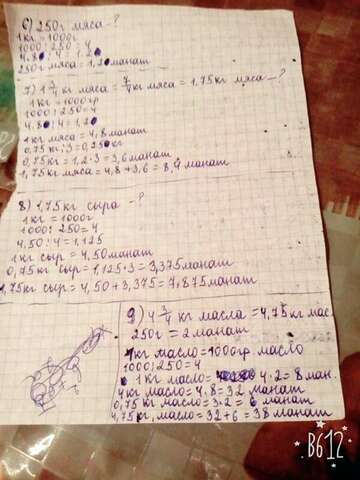 6) 250г мяса - ?
1кг = 1000г
1000 : 250 = 4
4.80 : 4 = 1.20
250г мяса = 1,20 манат
7) 1 3/4 кг мяса = 7/4 кг мяса = 1,75кг мяса - ?
1кг = 1000гр
1000 : 250 = 4
4.80 : 4 = 1.20
1кг мяса = 4,8 манат
0,75кг : 3 = 0,250кг
0,75кг = 1,2 · 3 = 3,6 манат
1,75кг мяса = 4,8 + 3,6 = 8,4 манат
8) 1,75кг сыра - ?
1кг = 1000г
1000 : 250 = 4
4,50 : 4 = 1,125
1кг сыр = 4,50 манат
0,75кг сыр = 1,125 · 3 = 3,375 манат
1,75кг сыр = 4,50 + 3,375 = 7,875 манат
9) 4 3/4 кг масла = 4,75кг мас.
250г = 2 манат
1кг масло = 1000гр. масло
1000 : 250 = 4
1кг масло = 4 · 2 = 8 ман.
4кг масло = 4 · 8 = 32 манат
0,75кг масло = 3 · 2 = 6 манат
4,75кг, масло = 32 + 6 = 38 манат
B612